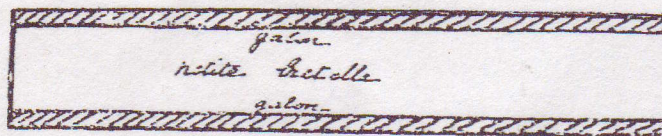 galon
petite bretelle
galon